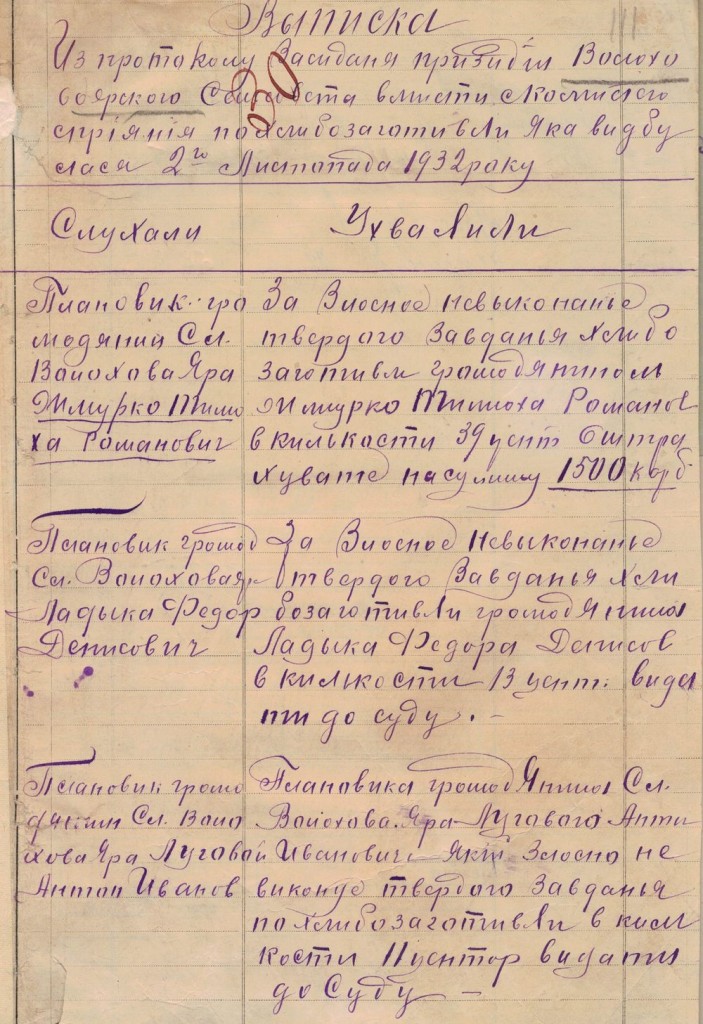 Выписка
Из протокому Засиданя призидіи Волохо
боярского Свилсовета вмисти скомисіего
спріянія похлибозаготивли яка видбу
лася 2го Листопада 1932 року
Слухали
Ухвалили
Плановик гро
модянин Сл.
Волохова Яра
Жмурко Тимо
ха Романович
За Злосное невыконанье
твердого Завданья хлибо
заготивли громодянином
Жмурко Тимоха Романов
в килькости 39 цент Оштра
хувате на сумму 1500 карб
Плановик громод
Сл. Волоховаяр
Ладыка Федор
Денисович
За Злосное Невыконанье
твердого Завданья хли
бозаготивли громодянина
Ладыка Федора Денисов
в килькости 13 цент. вида
ти до суду. —
Плановик громо
дянин Сл. Воло
хова Яра Луговой
Антон Иванов
Плановика громодянина Сл.
Волохова Яра Лугового Анти
Ивановича Який Злосно не
виконуе твердого Завданья
по хлибозаготивли в киль
кости 11 центнор видати
до Суду —